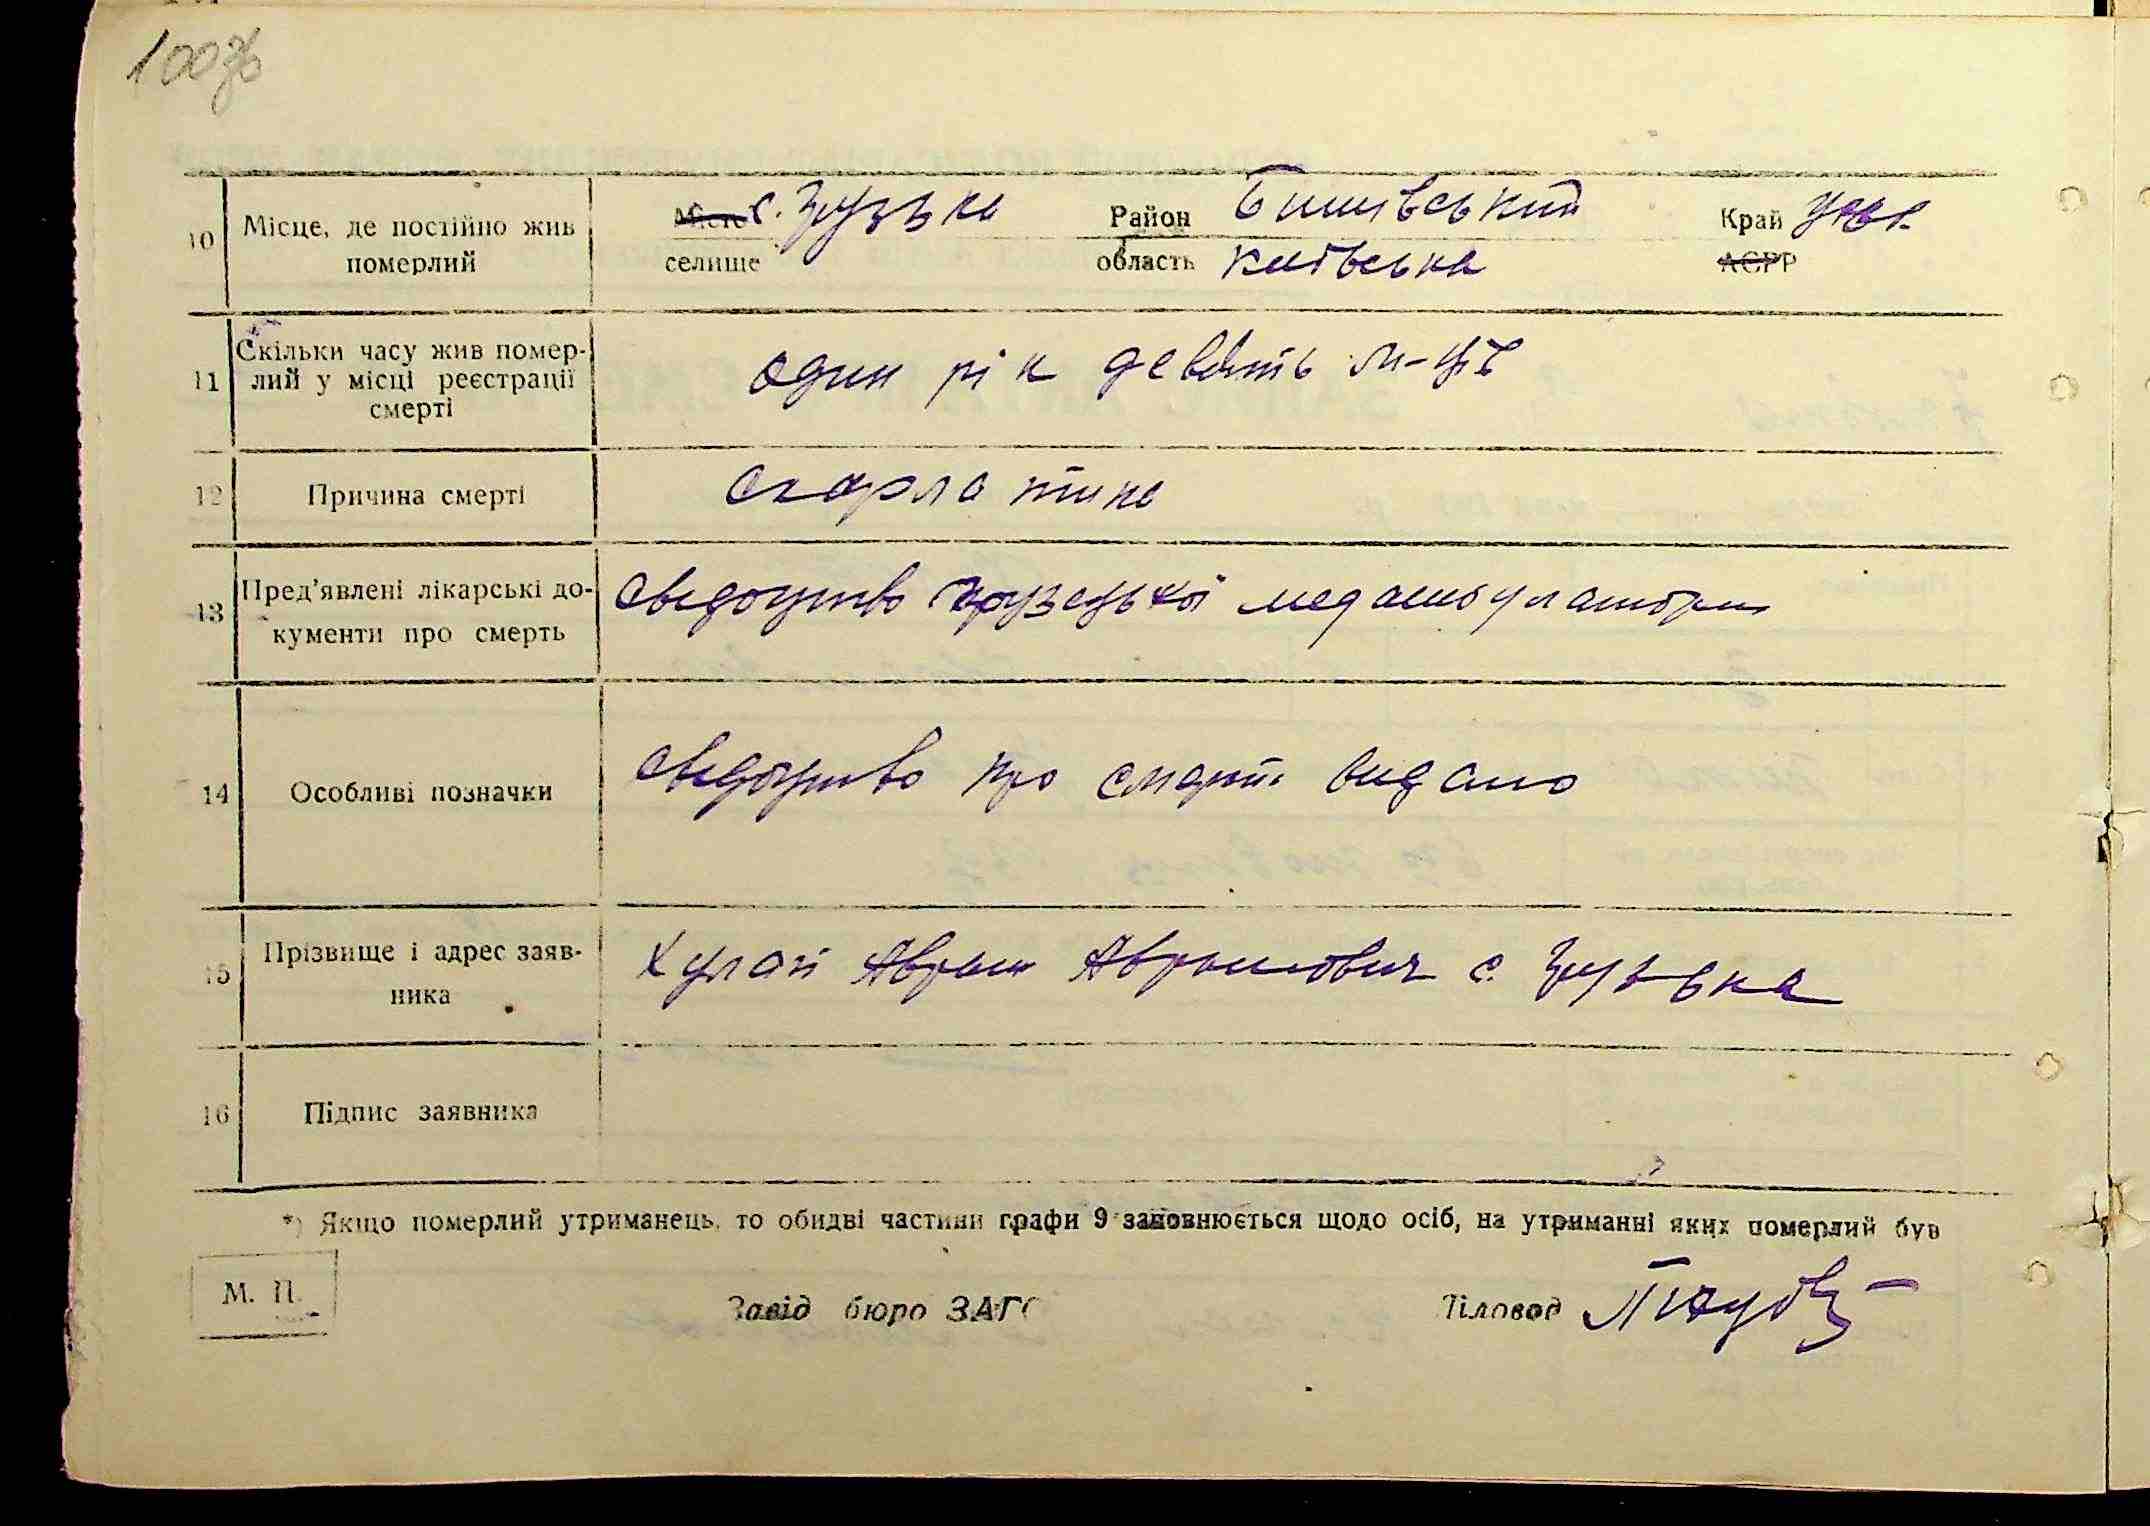 100зв
10 Місце, де постійно жив померлий Місто с. Грузька Район Бишівський Край УРСР
селище область Київська АСРР
11 Скільки часу жив помер-
лий у місці реєстрації
смерті один рік девять м-ців
12 Причина смерті скарлатина
13 Пред'явлені лікарські до-
кументи про смерть свідоцтво грузської медамбулатории
14 Особливі позначки свідоцтво про смерть видано
15 Прізвище і адрес заяв-
ника Хулай Аврам Аврамович с. Грузька
16 Підпис заявника
*) Якщо померлий утриманець, то обидві частини графи 9 заповнюється щодо осіб, на утриманні яких померлий був
М. П. Завід бюро ЗАГС Діловод